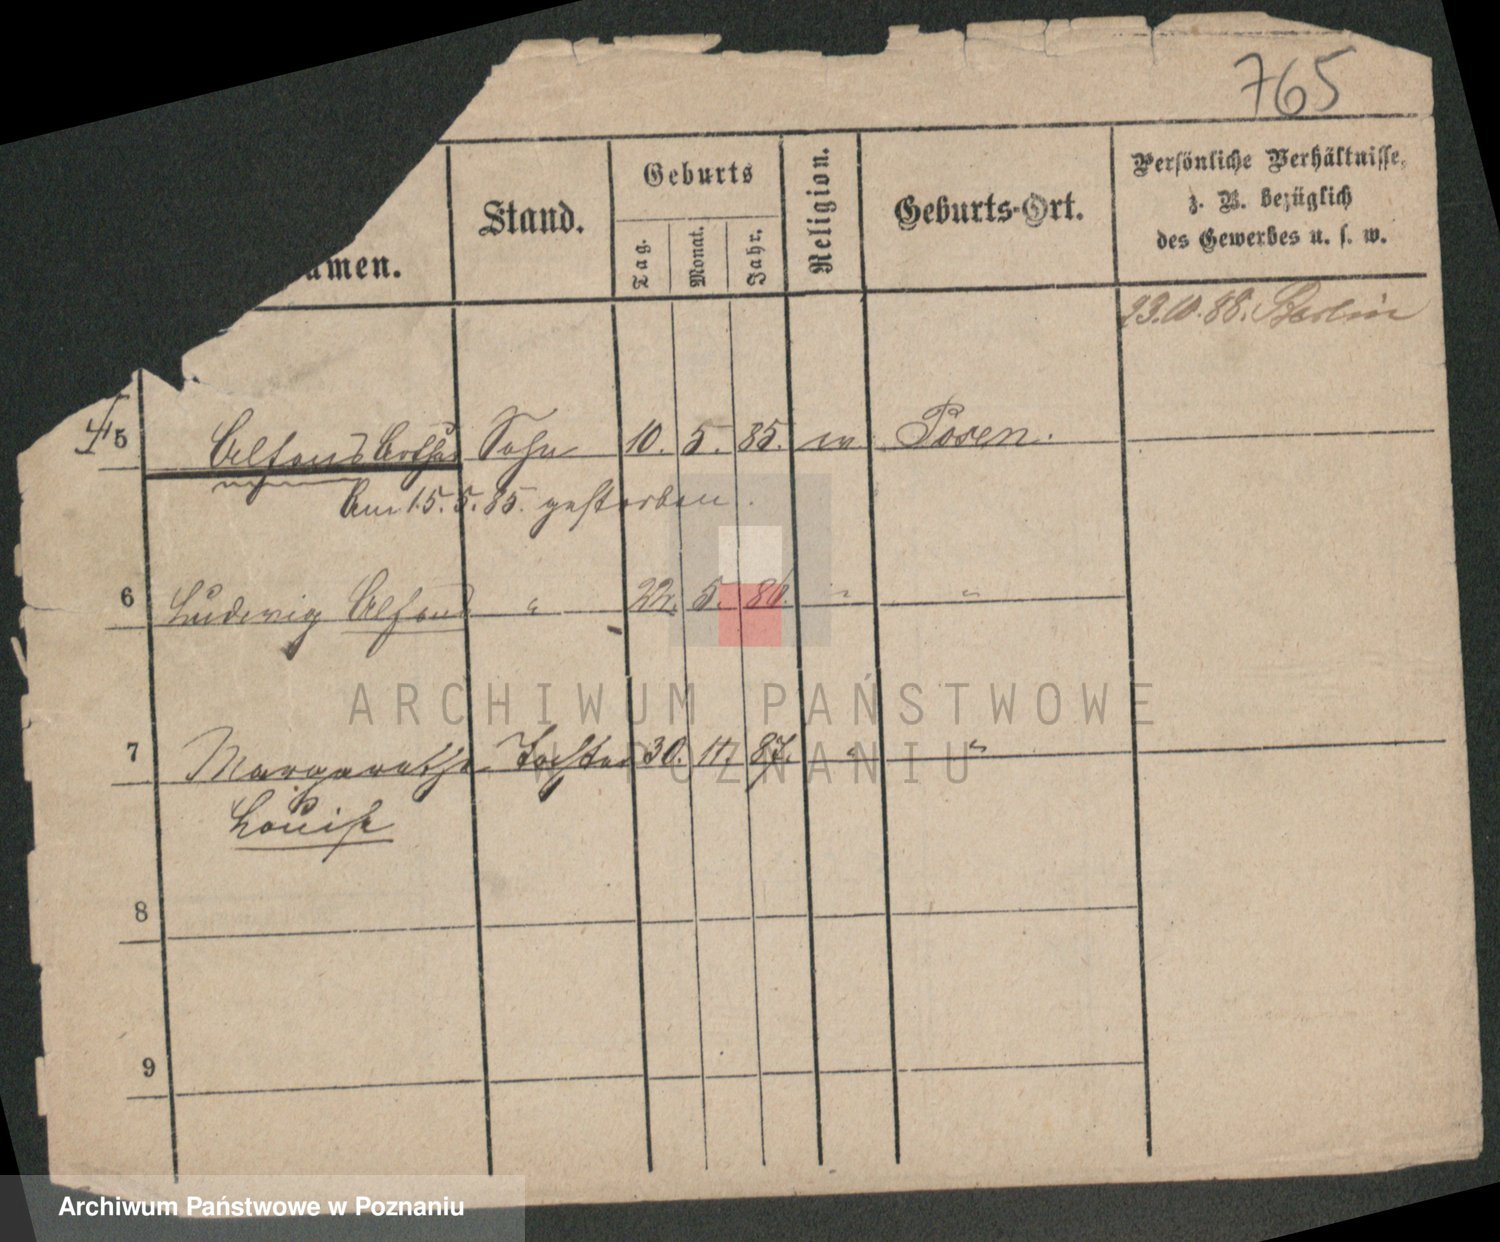 765
Stand.
Geburts
Tag.
Monat.
Jahr.
Religion.
Geburts-Ort.
Persönliche Verhältnisse,
z. B. bezüglich
des Gewerbes u. s. w.
amen.
23.10.88. Berlin
5 Alfons Arthur Sohn 10. 5. 85. Posen.
Am 15.5.85. gestorben.
6 Ludwig Alfons " 22. 5. 86. " "
7 Margarethe Tochter 30. 11. 87. " "
Louise
8
9
ARCHIWUM PAŃSTWOWE
W POZNANIU
Archiwum Państwowe w Poznaniu